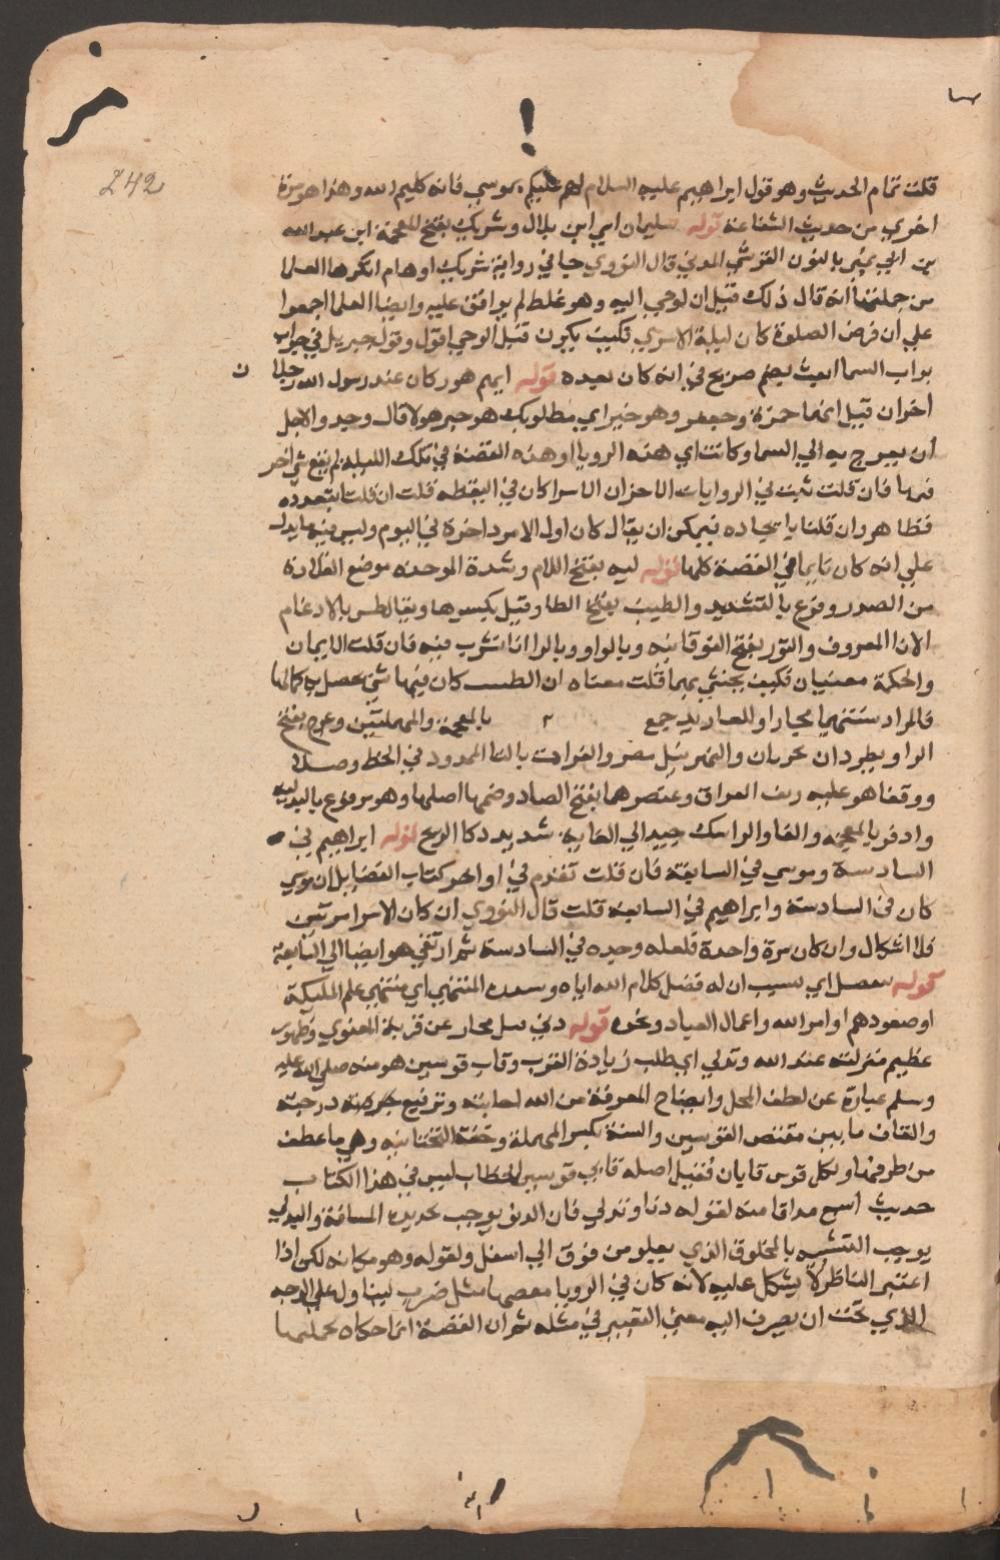 242
قلت تمام الحديث وهو قول ابراهيم عليه السلام لهم عليكم بموسى فانه كليم الله وهذا هو مرة
اخرى من حديث الشفاعة قوله سليمان اي ابن بلال وشريك بفتح المعجمة ابن عبد الله
بن ابي نمر بالنون القرشي المدني قال النووي جا في رواية شريك اوهام انكرها العلما
من جملتها انه قال ذلك قبل ان يوحى اليه وهو غلط لم يوافق عليه وايضا العلما اجمعوا
على ان فرض الصلوة كان ليلة الاسري فكيف يكون قبل الوحي اقول وقول جبريل في جواب
بواب السما ابعث نعم صريح في انه كان بعيده قوله ايهم هو وكان عند رسول الله رجلا ن
اخران قيل انهما حمزة وجعفر وهو خير اي مطلوبك هو خير هولا قال وحيد والاجل
ان يعرج به الى السما وكانت اي هذه الرويا او هذه القصة في تلك الليلة لم يقع شي اخر
فيها فان قلت ثبت في الروايات الاخر ان الاسرا كان في اليقظه قلت ان قلنا بتعدده
فظاهر وان قلنا باتحاده فيمكن ان يقال كان اول الامر واخره في النوم وليس فيه ما يدل
على انه كان نايما في القصة كلها قوله لبه بفتح اللام وشدة الموحده موضع القلادة
من الصدر وفرع بالتشديد والطيب بفتح الطا وقيل بكسرها ويقال طس بالادغام
الانا المعروف والتور بفتح الفوقانيه وبالواو وبالرا انا تشرب فيه فان قلت الايمان
والحكمة معنيان فكيف يحشي بهما قلت معناه ان الطست كان فيها شي يحصل به كمالها
فالمراد سببهما مجازا واللغاديد جمع بالمعجمة والمهملتين وعرج بفتح
الرا ويطردان يجريان والنهر نيل مصر والفرات بالتا الممدود في الخط وصلا
ووقفا هو عليه ريف العراق وعنصرهما بفتح الصاد وضمها اصلهما وهو مرفوع بالبدليه
واذفر بالمعجمه والفا والرا مسك جيد الى الغاية شديد ذكا الريح قوله ابراهيم في
السادسة وموسى في السابعة فان قلت تقدم في اواخر كتاب الفضايل ان موسى
كان في السادسة وابراهيم في السابعة قلت قال النووي ان كان الاسرا مرتين
فلا اشكال وان كان مرة واحدة فلعله وجده في السادسة ثم ارتقى هو ايضا الى السابعة
قوله بفضل اي بسبب ان له فضل كلام الله اياه وسدرة المنتهى اي منتهى علم الملايكة
او صعودهم او امر الله واعمال العباد ونحوه قوله دنى قيل مجاز عن قربه المعنوي وظهور
عظيم منزلته عند الله وتدلى اي طلب زيادة القرب وقاب قوسين هو منه صلى الله عليه
وسلم عبارة عن لطف المحل وايضاح المعرفة من الله اجابته وترفيع درجته
والقاب ما بين مقبض القوسين والسية بكسر المهملة وخفة التحتانيه وهي ما عطف
من طرفيها ولكل قوس قابان فقيل اصله قابي قوسين الخطابي ليس في هذا الكتاب
حديث اشنع مذاقا منه لقوله دنا وتدلى فان الدنو يوجب تحديد المسافة والتدلي
يوجب التشبيه بالمخلوق الذي يعلو من فوق الى اسفل ولقوله وهو مكانه لكن اذا
اعتبر الناظر لا يشكل عليه لانه كان في الرويا بعضها مثل ضرب ليتاول على الوجه
الذي يجب ان يصرف اليه معنى التعبير في مثله ثم ان القصة انما حكاه